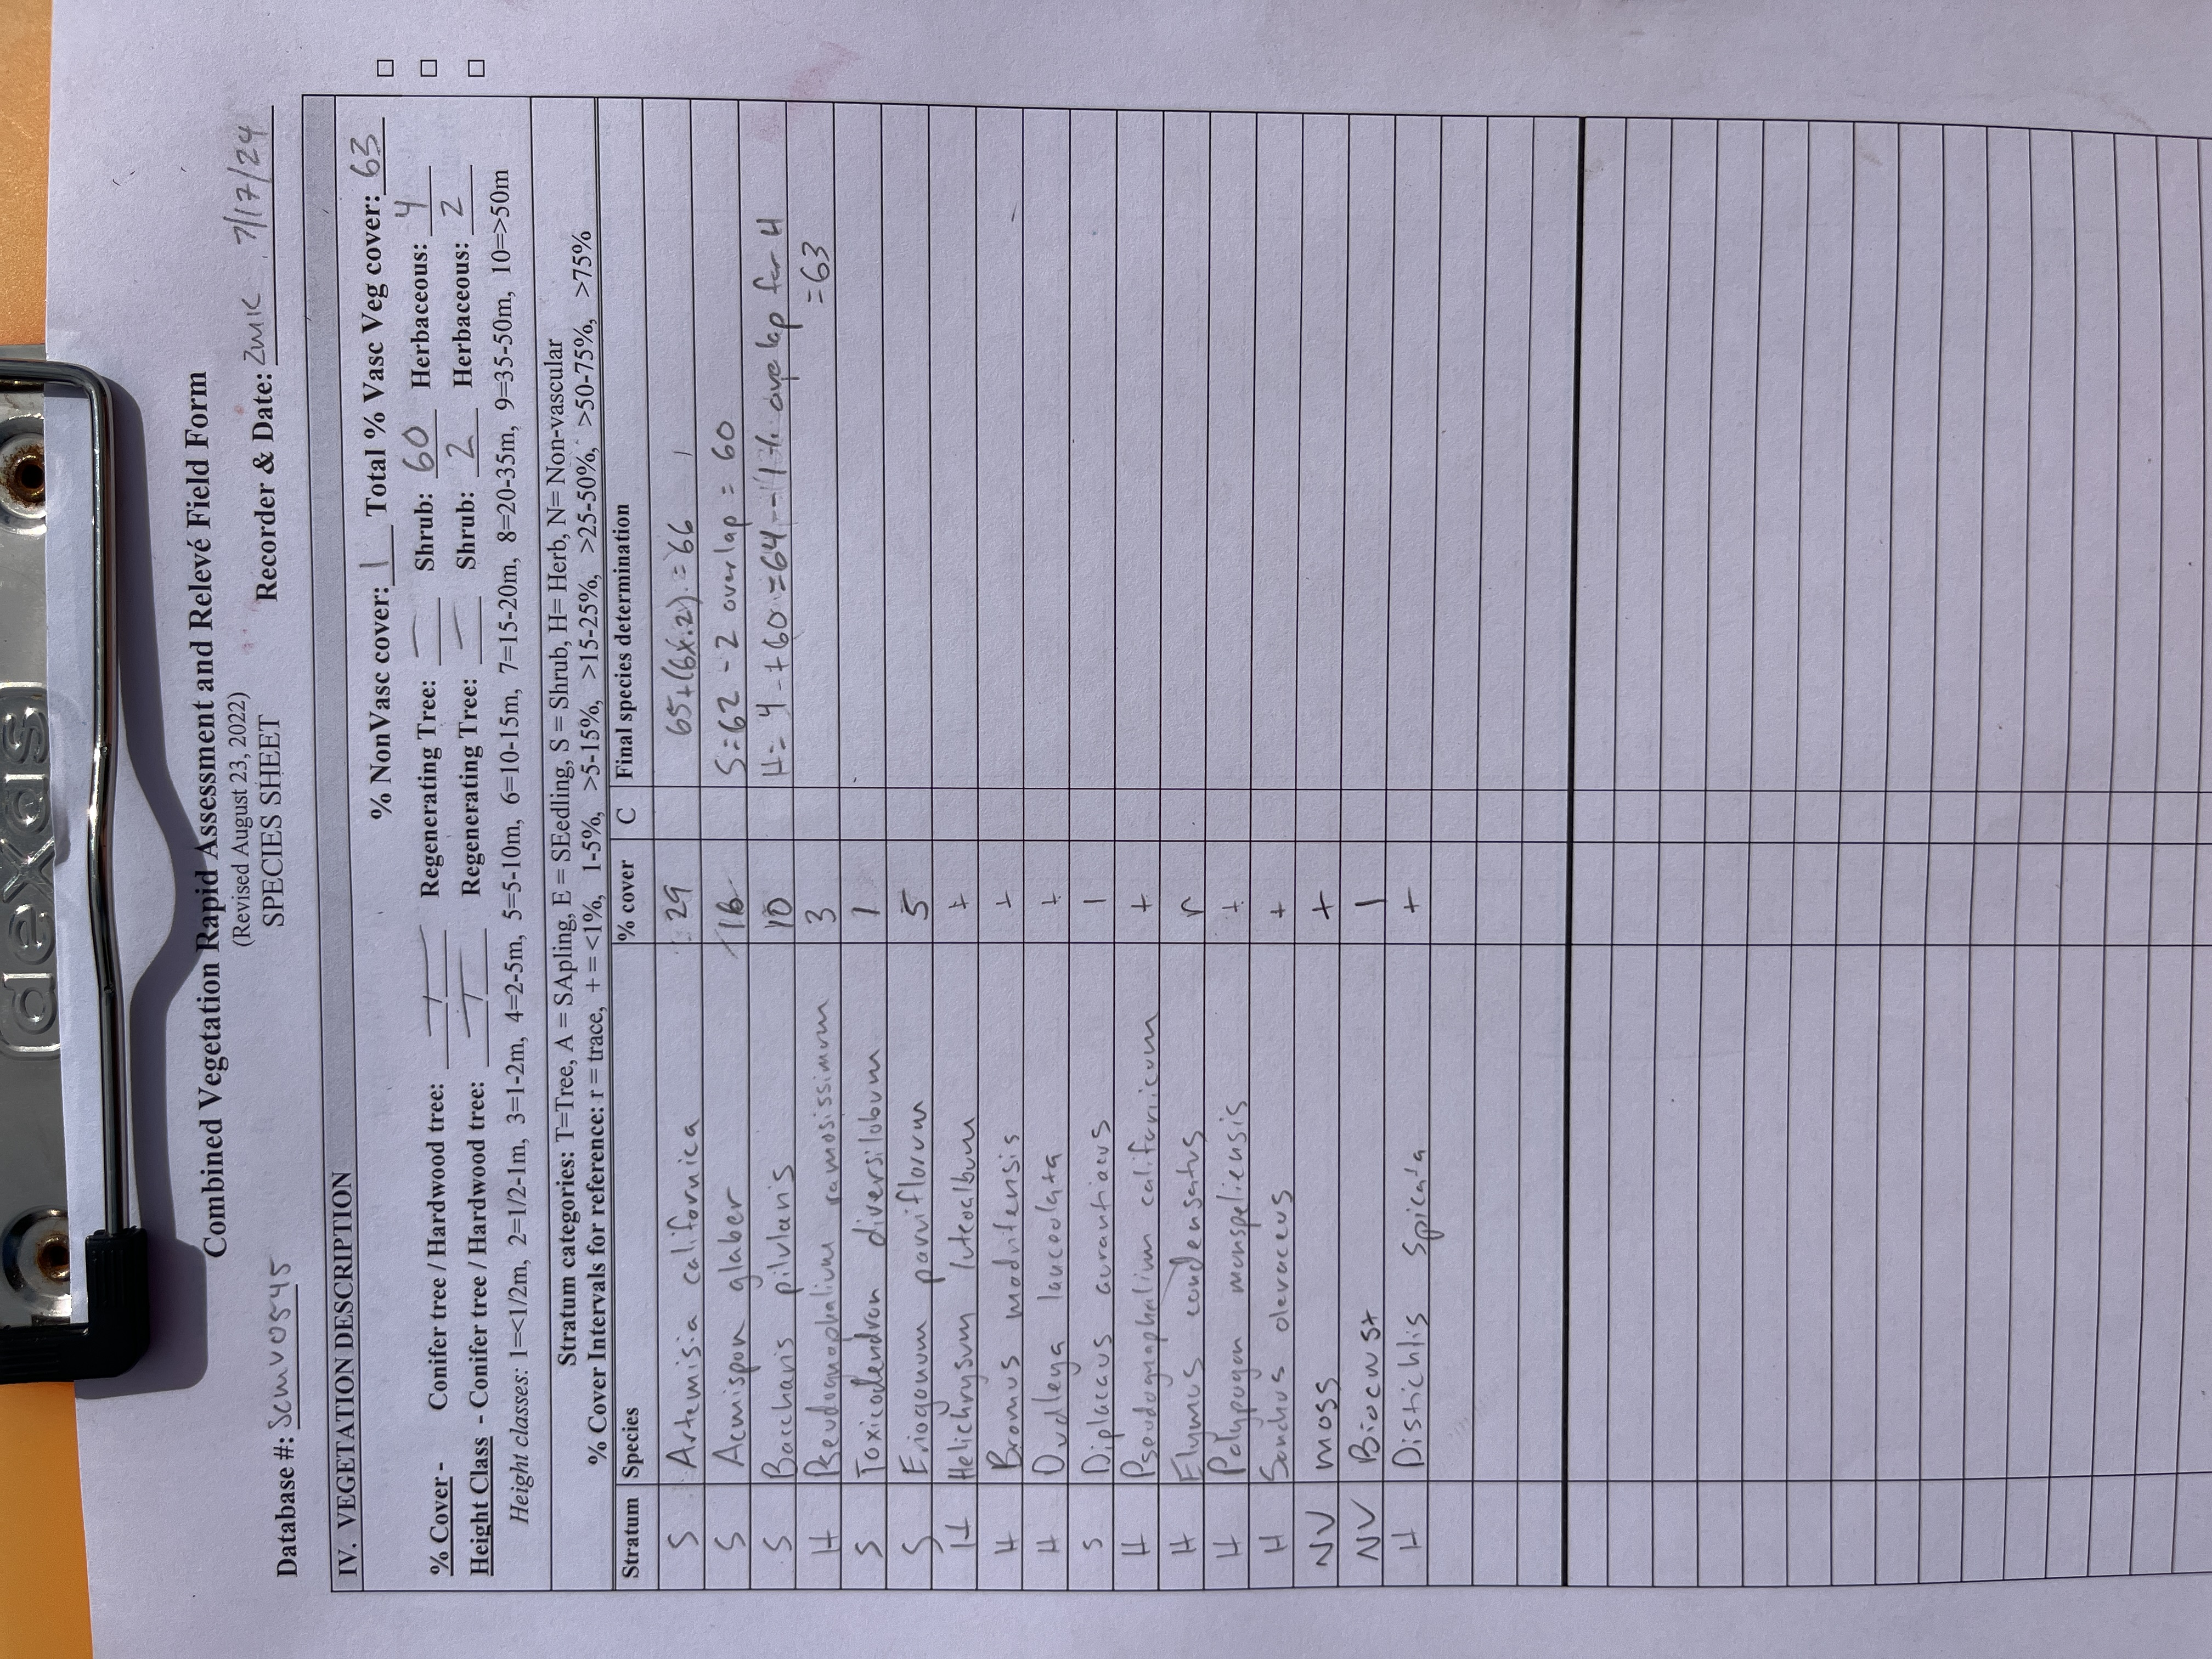 dexas
Combined Vegetation Rapid Assessment and Relevé Field Form
(Revised August 23, 2022)
SPECIES SHEET
Database #: Scmv0545 Recorder & Date: ZMK 7/17/24
IV. VEGETATION DESCRIPTION
% NonVasc cover: 1 Total % Vasc Veg cover: 63
% Cover - Conifer tree / Hardwood tree: — / — Regenerating Tree: — Shrub: 60 Herbaceous: 4
Height Class - Conifer tree / Hardwood tree: — / — Regenerating Tree: — Shrub: 2 Herbaceous: 2
Height classes: 1=<1/2m, 2=1/2-1m, 3=1-2m, 4=2-5m, 5=5-10m, 6=10-15m, 7=15-20m, 8=20-35m, 9=35-50m, 10=>50m
Stratum categories: T=Tree, A = SApling, E = SEedling, S = Shrub, H= Herb, N= Non-vascular
% Cover Intervals for reference: r = trace, + = <1%, 1-5%, >5-15%, >15-25%, >25-50%, >50-75%, >75%
Stratum Species % cover C Final species determination
S Artemisia californica 29 65+(6x.2) = 66
S Acmispon glaber 16 S=62 - 2 overlap = 60
S Baccharis pilularis 10 H= 4 + 60 = 64 - 1% overlap for H
H Pseudognaphalium ramosissimum 3 =63
S Toxicodendron diversilobum 1
S Eriogonum parviflorum 5
H Helichrysum luteoalbum +
H Bromus madritensis +
H Dudleya lanceolata +
S Diplacus aurantiacus 1
H Pseudognaphalium californicum +
H Elymus condensatus r
H Polypogon monspeliensis +
H Sonchus oleraceus +
NV moss +
NV Biocrust 1
H Distichlis spicata +